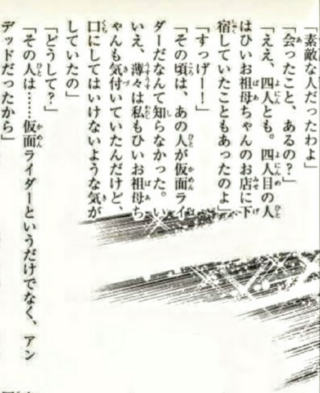 「素敵な人だったわよ」
「会ったこと、あるの?」
「ええ、四人とも。四人目の人
はひいお祖母ちゃんのお店に下
宿していたこともあったのよ」
「すっげー!」
「その頃は、あの人が仮面ライ
ダーだなんて知らなかった。い
いえ、薄々は私もひいお祖母ち
ゃんも気付いていたんだけど、
口にしてはいけないような気が
していたの」
「どうして?」
「その人は……仮面ライダーというだけでなく、アン
デッドだったから」